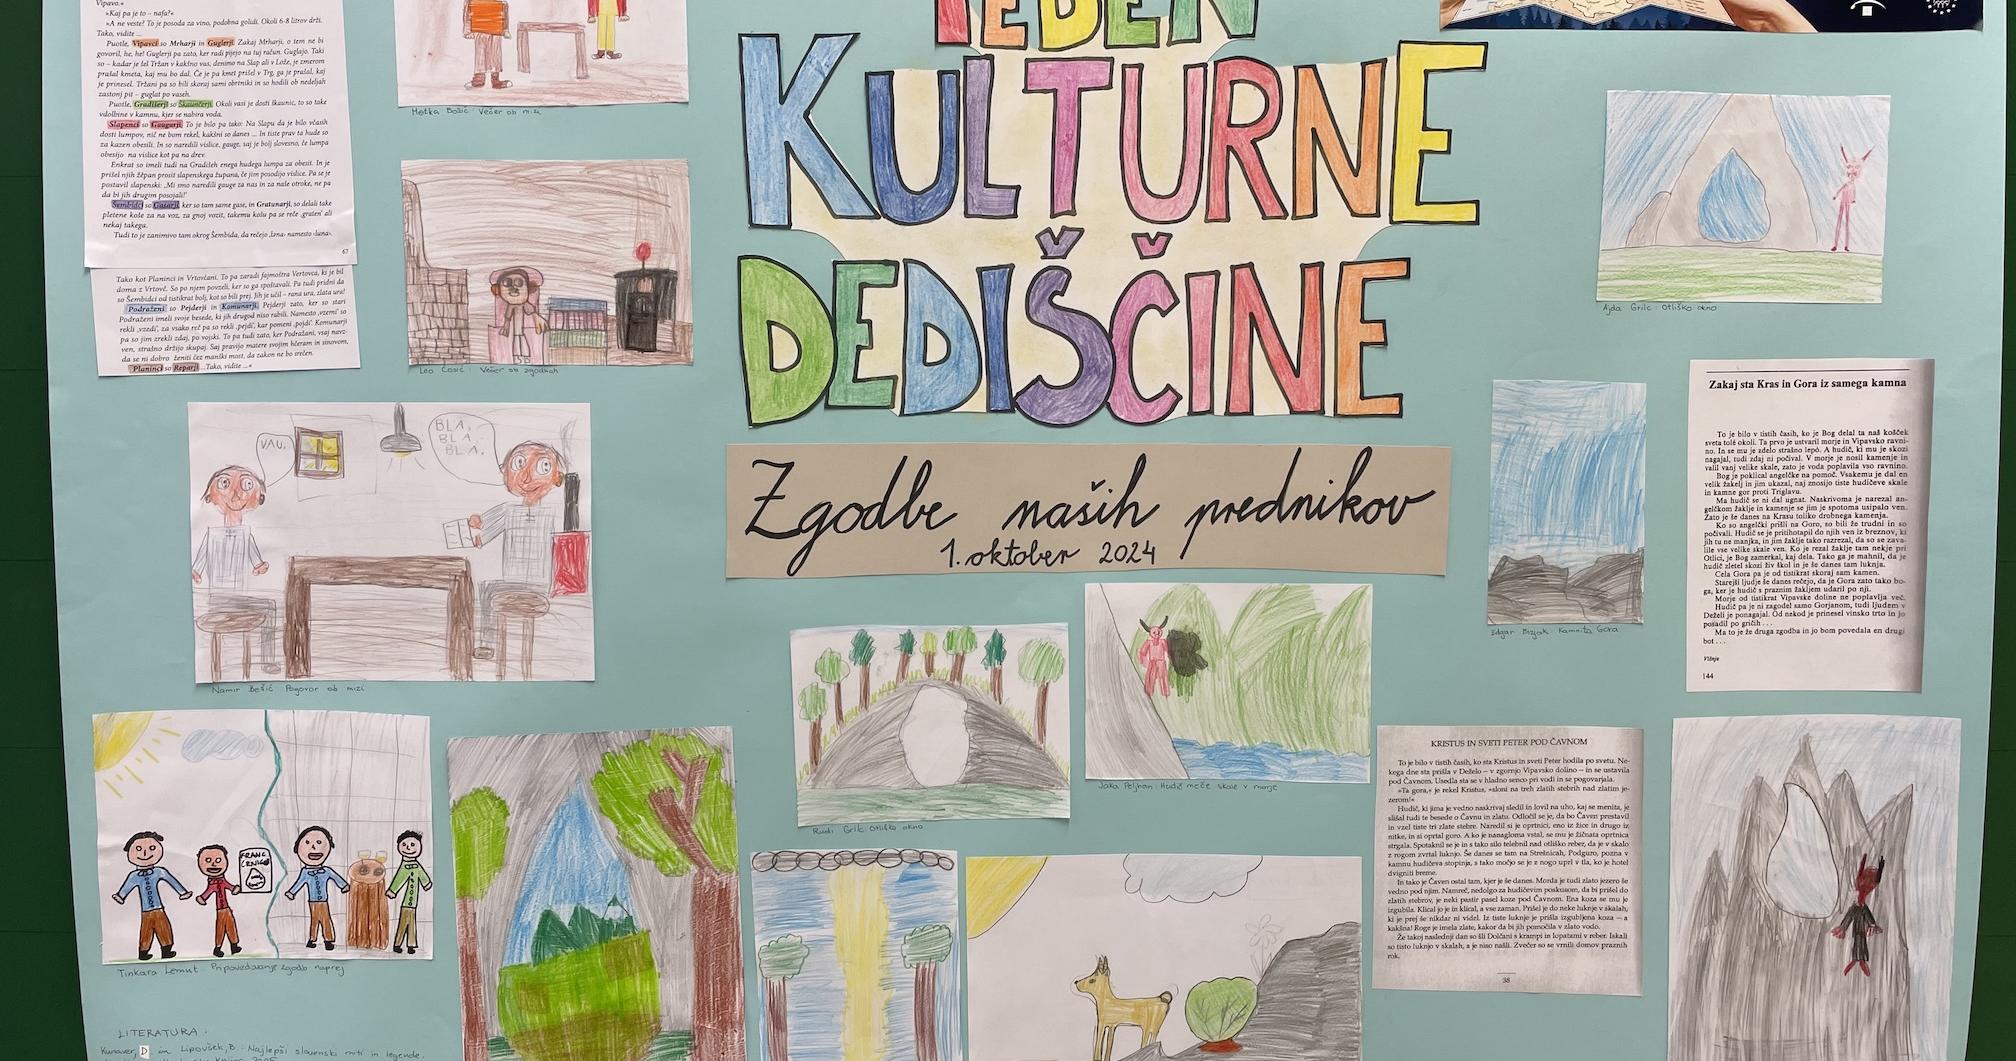 Vipavo.«
»Kaj pa je to – nafa?«
»A ne veste? To je posoda za vino, podobna golidi. Okoli 6-8 litrov drži.
Tako, vidite ...
Puotle, Vipavci so Mrharji in Guglerji. Zakaj Mrharji, o tem ne bi
govoril, he, he! Guglerji pa zato, ker radi pijejo na tuj račun. Guglajo. Taki
so – kadar je šel Tržan v kakšno vas, denimo na Slap ali v Lože, je zmerom
prašal kmeta, kaj mu bo dal. Če je pa kmet prišel v Trg, ga je prašal, kaj
je prinesel. Tržani pa so bili skoraj sami obrtniki in so hodili ob nedeljah
zastonj pit – guglat po vaseh.
Puotle, Gradišerji so Škaunčerji. Okoli vasi je dosti škaunic, to so take
vdolbine v kamnu, kjer se nabira voda.
Slapenci so Gaugarji. To je bilo pa tako: Na Slapu da je bilo včasih
dosti lumpov, nič ne bom rekel, kakšni so danes ... In tiste prav ta hude so
za kazen obesili. In so naredili vislice, gauge, saj je bolj slovesno, če lumpa
obesijo na vislice kot pa na drev.
Enkrat so imeli tudi na Gradišeh enega hudega lumpa za obesit. In je
prišel njih žẹpan prosit slapenskega župana, če jim posodijo vislice. Pa se je
postavil slapenski: ‚Mi smo naredili gauge za nas in za naše otroke, ne pa
da bi jih drugim posojali!‘
Šembidci so Gasarji, ker so tam same gase, in Gratunarji, so delali take
pletene koše za na voz, za gnoj vozit, takemu košu pa se reče ‚graten‘ ali
nekaj takega.
Tudi to je zanimivo tam okrog Šembida, da rečejo ‚lzna‹ namesto ›luna‹.
67
Tako kot Planinci in Vrtovčani. To pa zaradi fajmoštra Vertovca, ki je bil
doma z Vrtovč. So po njem povzeli, ker so ga spoštovali. Pa tudi pridni da
so Šembidci od tistikrat bolj, kot so bili prej. Jih je učil – rana ura, zlata ura!
Podraženi so Pejderji in Komunarji. Pejderji zato, ker so stari
Podraženi imeli svoje besede, ki jih drugod niso rabili. Namesto ‚vzemi‘ so
rekli ‚vzedi‘, za vsako reč pa so rekli ‚pejdi‘, kar pomeni ‚pojdi‘. Komunarji
pa so jim zrekli zdaj, po vojski. To pa tudi zato, ker Podražani, vsaj navz-
ven, strašno držijo skupaj. Saj pravijo matere svojim hčeram in sinovom,
da se ni dobro ženiti čez manški most, da zakon ne bo srečen.
Planinci so Reparji ...Tako, vidite ...«
Metka Božič: Večer ob mizi
Leo Ćosić: Večer ob zgodbah
VAU.
BLA,
BLA,
BLA.
Namir Bešić Pogovor ob mizi
FRANC
Tinkara Lemut Pripovedovanje zgodb naprej
LITERATURA.
Kunaver, D in Lipovšek, B: Najlepši slovenski miti in legende.
TEDEN
KULTURNE
DEDIŠČINE
Zgodbe naših prednikov
1. oktober 2024
Rudi Grilc: Otliško okno
Jaka Peljhan: Hudič meče skale v morje
Ajda Grilc: Otliško okno
Edgar Bizjak: Kamnita Gora
Zakaj sta Kras in Gora iz samega kamna
To je bilo v tistih časih, ko je Bog delal ta naš košček
sveta tolè okoli. Ta prvo je ustvaril morje in Vipavsko ravni-
no. In se mu je zdelo strašno lepó. A hudič, ki mu je skozi
nagajal, tudi zdaj ni počival. V morje je nosil kamenje in
valil vanj velike skale, zato je voda poplavila vso ravnino.
Bog je poklical angelčke na pomoč. Vsakemu je dal en
velik žakelj in jim ukazal, naj znosijo tiste hudičeve skale
in kamne gor proti Triglavu.
Ma hudič se ni dal ugnat. Naskrivoma je narezal an-
gelčkom žaklje in kamenje se jim je spotoma usipalo ven.
Zato je še danes na Krasu toliko drobnega kamenja.
Ko so angelčki prišli na Goro, so bili že trudni in so
počivali. Hudič se je pritihotapil do njih ven iz breznov, ki
jih tu ne manjka, in jim žaklje tako razrezal, da so se zava-
lile vse velike skale ven. Ko je rezal žaklje tam nekje pri
Otlici, je Bog zamerkal, kaj dela. Tako ga je mahnil, da je
hudič zletel skozi živ škol in je še danes tam luknja.
Cela Gora pa je od tistikrat skoraj sam kamen.
Starejši ljudje še danes rečejo, da je Gora zato tako bo-
ga, ker je hudič s praznim žakljem udaril po nji.
Morje od tistikrat Vipavske doline ne poplavlja več.
Hudič pa je ni zagodel samo Gorjanom, tudi ljudem v
Deželi je ponagajal. Od nekod je prinesel vinsko trto in jo
posadil po gričih ...
Ma to je že druga zgodba in jo bom povedala en drugi
bot ...
Višnje
144
KRISTUS IN SVETI PETER POD ČAVNOM
To je bilo v tistih časih, ko sta Kristus in sveti Peter hodila po svetu. Ne-
kega dne sta prišla v Deželo – v zgornjo Vipavsko dolino – in se ustavila
pod Čavnom. Usedla sta se v hladno senco pri vodi in se pogovarjala.
»Ta gora,« je rekel Kristus, »sloni na treh zlatih stebrih nad zlatim je-
zerom!«
Hudič, ki jima je vedno naskrivaj sledil in lovil na uho, kaj se menita, je
slišal tudi te besede o Čavnu in zlatu. Odločil se je, da bo Čaven prestavil
in vzel tiste tri zlate stebre. Naredil si je oprtnici, eno iz žice in drugo iz
nitke, in si oprtal goro. A ko je nanagloma vstal, se mu je žičnata oprtnica
strgala. Spotaknil se je in s tako silo telebnil nad otliško reber, da je v skalo
z rogom zvrtal luknjo. Še danes se tam na Strešnicah, Podguro, pozna v
kamnu hudičeva stopinja, s tako močjo se je z nogo uprl v tla, ko je hotel
dvigniti breme.
In tako je Čaven ostal tam, kjer je še danes. Morda je tudi zlato jezero še
vedno pod njim. Namreč, nedolgo za hudičevim poskusom, da bi prišel do
zlatih stebrov, je neki pastir pasel koze pod Čavnom. Ena koza se mu je
izgubila. Klical jo je in klical, a vse zaman. Prišel je do neke luknje v skalah,
ki je prej še nikdar ni videl. Iz tiste luknje je prišla izgubljena koza – a
kakšna! Roge je imela zlate, kakor da bi jih pomočila v zlato vodó.
Že takoj naslednji dan so šli Dolčani s krampi in lopatami v reber. Iskali
so tisto luknjo v skalah, a je niso našli. Zvečer so se vrnili domov praznih
rok.
38